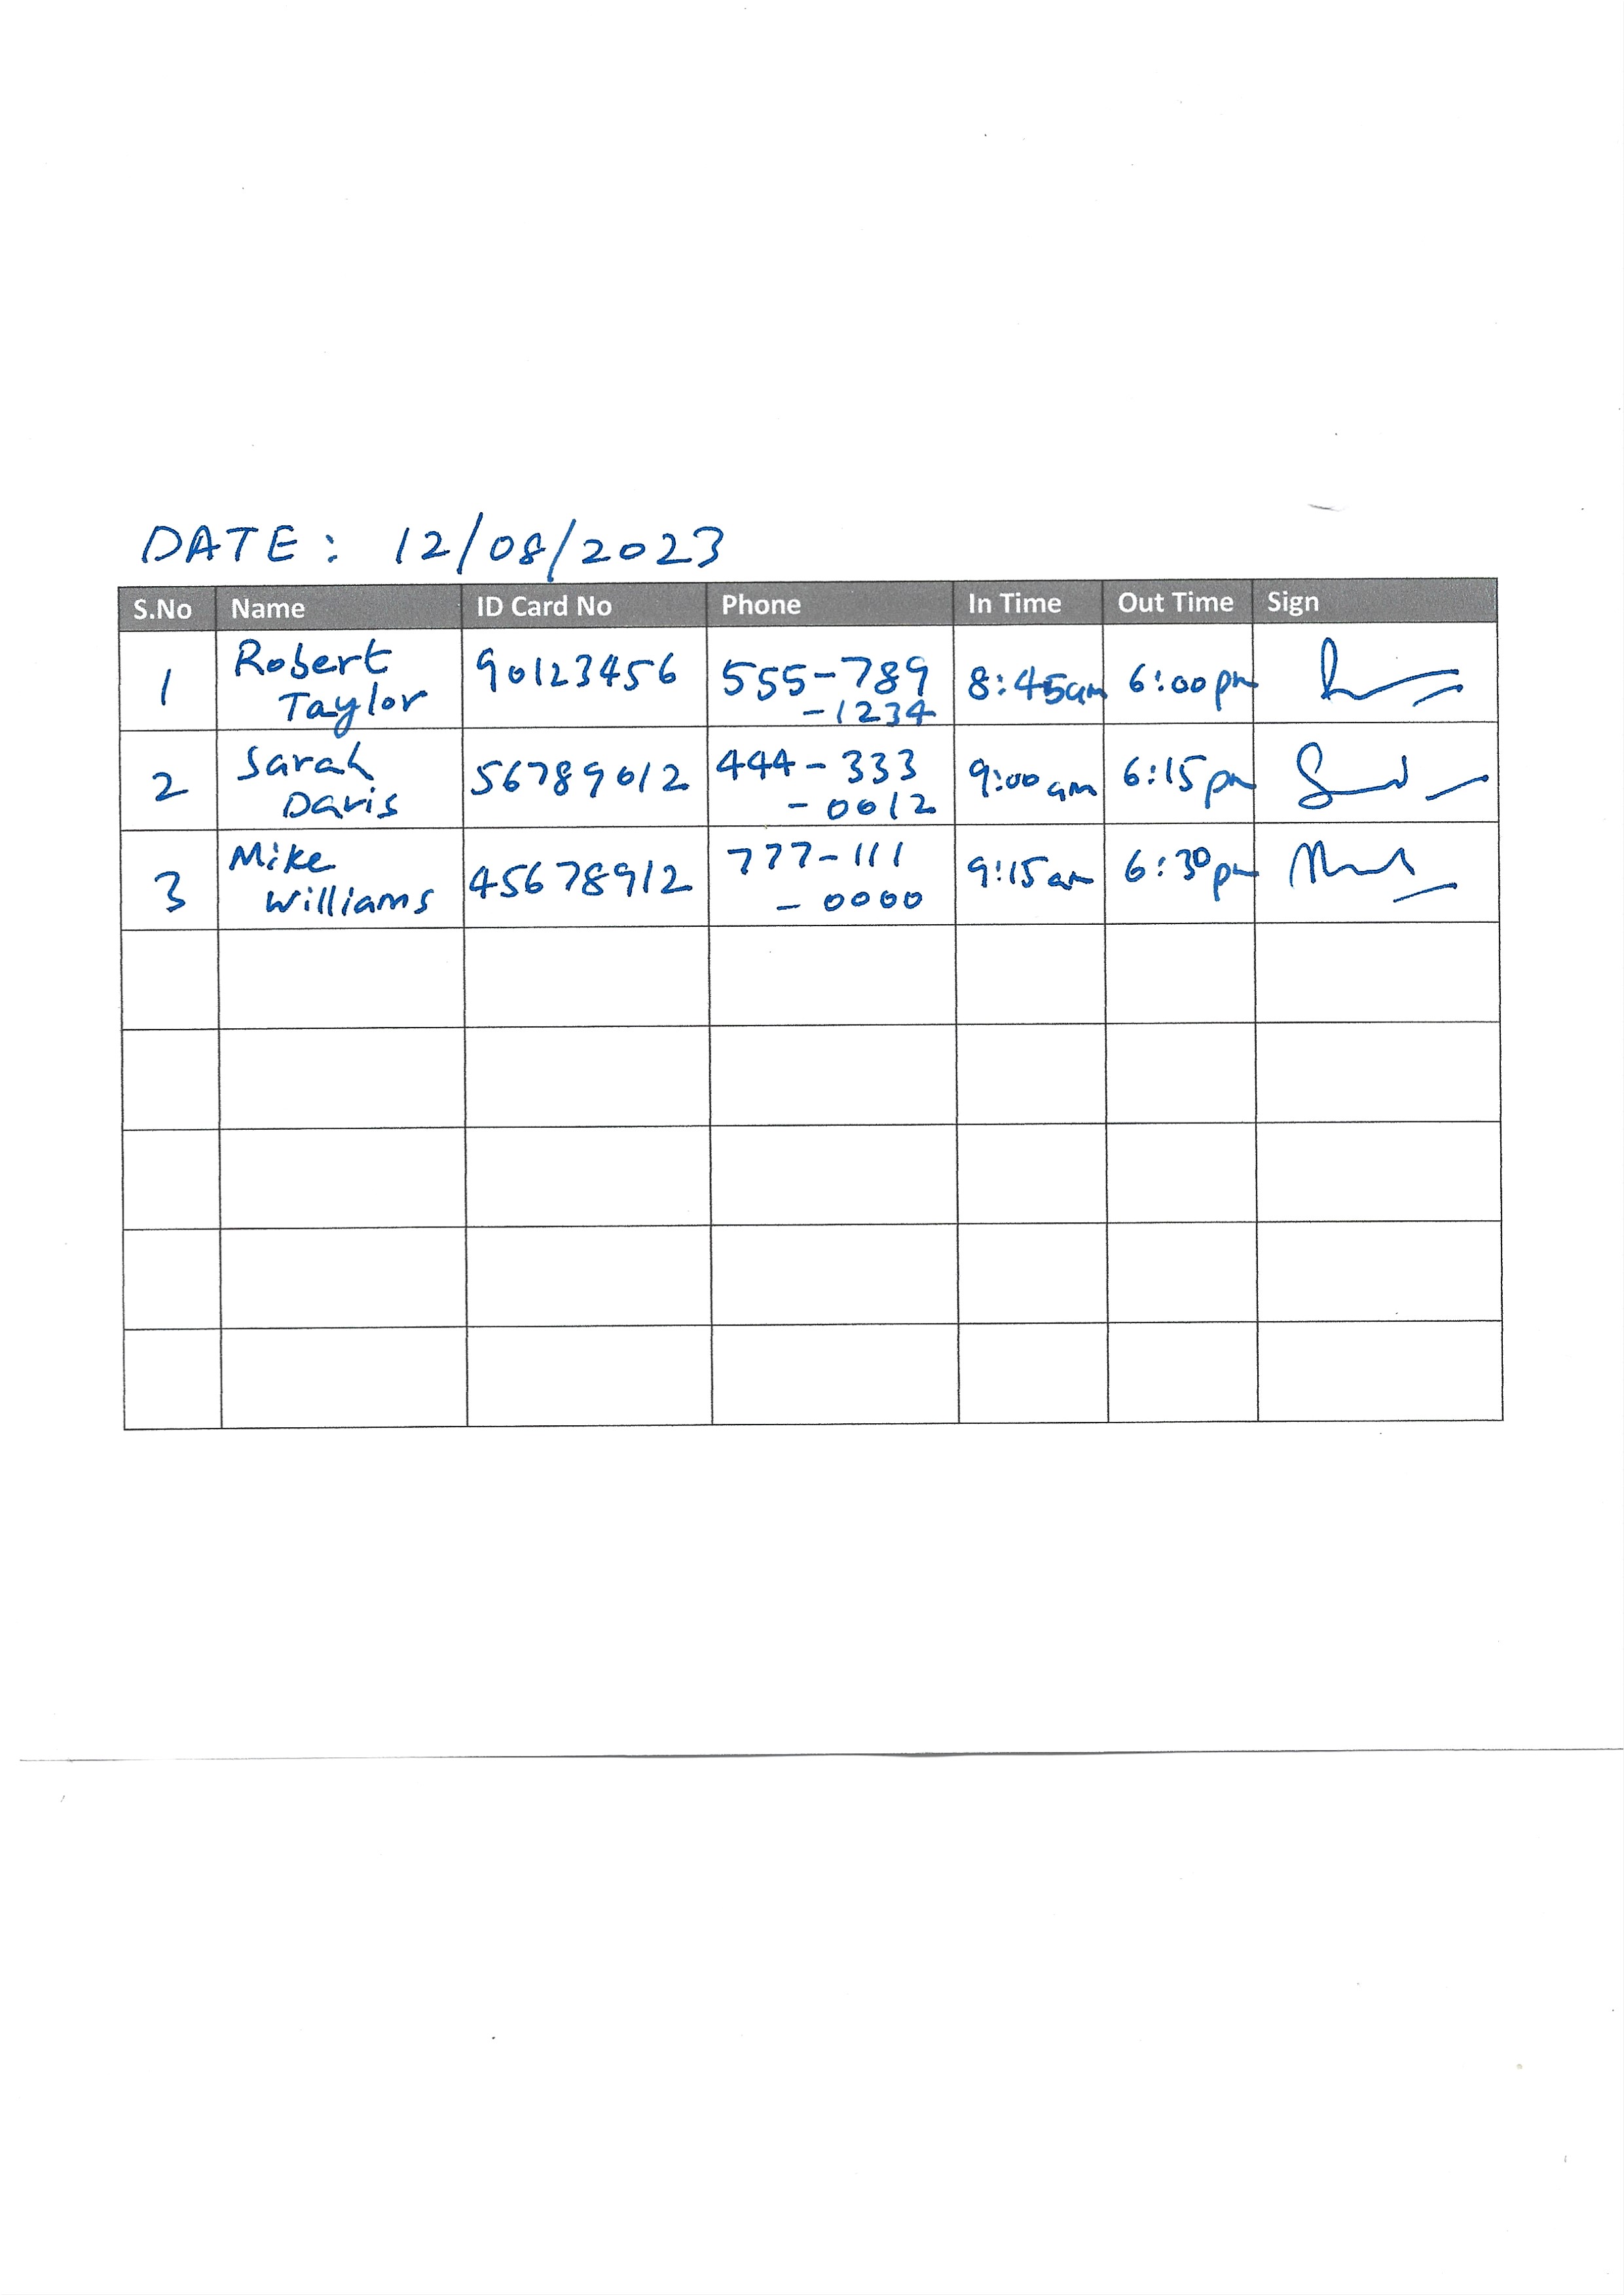 DATE: 12/08/2023
S.No Name ID Card No Phone In Time Out Time Sign
1 Robert Taylor 90123456 555-789-1234 8:45am 6:00pm
2 Sarah Davis 56789012 444-333-0012 9:00am 6:15pm
3 Mike Williams 45678912 777-111-0000 9:15am 6:30pm